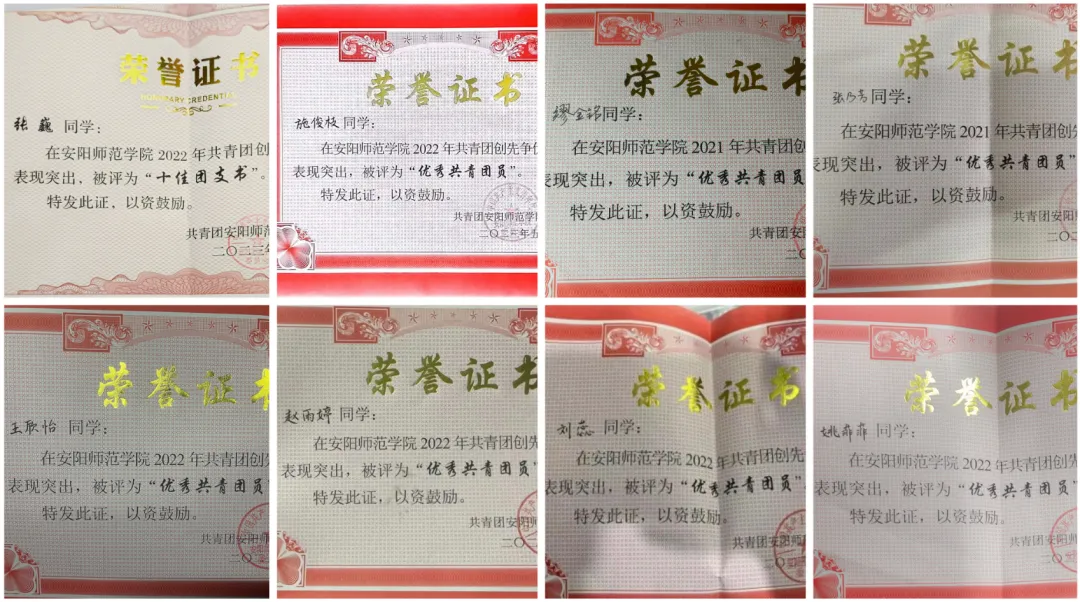 荣誉证书
HONORARY CREDENTIAL
张巍 同学：
在安阳师范学院 2022 年共青团创
表现突出，被评为“十佳团支书”。
特发此证，以资鼓励。
共青团安阳师范
二〇二三年
荣誉证书
施俊枝同学：
在安阳师范学院 2022 年共青团创先争优
表现突出，被评为“优秀共青团员”。
特发此证，以资鼓励。
共青团安阳师范学院
二〇二三年五
荣誉证书
同学：
在安阳师范学院 2021 年共青团创
表现突出，被评为“优秀共青团员
特发此证，以资鼓励。
共青团安阳
二〇
荣誉证
同学：
在安阳师范学院 2021 年共青团创先
表现突出，被评为“优秀共青团员”
特发此证，以资鼓励。
共青团安
二〇二
荣誉证书
王欣怡 同学：
在安阳师范学院 2022 年共青团创先
表现突出，被评为“优秀共青团员
特发此证，以资鼓励。
共青团安阳师
二〇
荣誉证书
赵雨婷 同学：
在安阳师范学院 2022 年共青团创先
表现突出，被评为“优秀共青团员”
特发此证，以资鼓励。
共青团安阳师
二〇二
荣誉证书
刘蕊 同学：
在安阳师范学院 2022 年共青团创先
表现突出，被评为“优秀共青团员”
特发此证，以资鼓励。
共青团安阳师
二〇二
荣誉证
姚菲菲 同学：
在安阳师范学院 2022 年共青团创先
表现突出，被评为“优秀共青团员”
特发此证，以资鼓励。
共青团安阳
二〇二